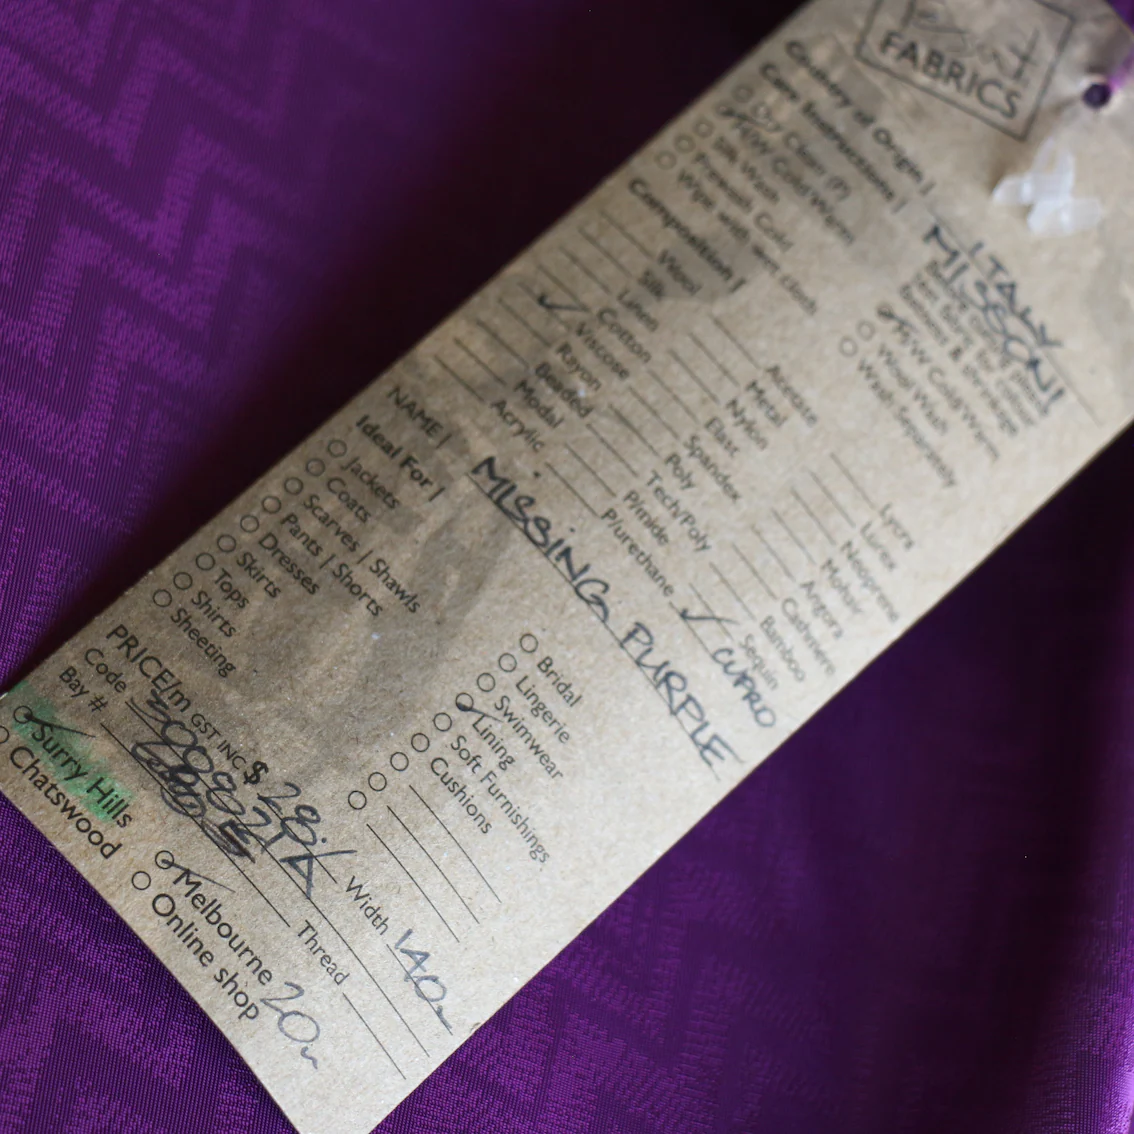 FABRICS
Country of Origin |
ITALY
MISSONI
Care Instructions |
Dry Clean (P)
H/W Cold/Warm
Silk Wash
Prewash Cold
Wipe with wet cloth
H/W Cold/Warm
Wool Wash
Wash Separately
Composition |
Wool
Silk
Linen
Cotton
Viscose
Rayon
Beaded
Modal
Acrylic
Acetate
Metal
Nylon
Elast
Spandex
Poly
Tech/Poly
P/mide
P/urethane
Lycra
Lurex
Neoprene
Mohair
Angora
Cashmere
Bamboo
Sequin
CUPRO
NAME | MISSING PURPLE
Ideal For |
Jackets
Coats
Scarves | Shawls
Pants | Shorts
Dresses
Skirts
Tops
Shirts
Sheeting
Bridal
Lingerie
Swimwear
Lining
Soft Furnishings
Cushions
PRICE/m GST INC $ 29.
Width 140
Code
Bay #
Thread
Surry Hills
Chatswood
Melbourne 20m
Online shop